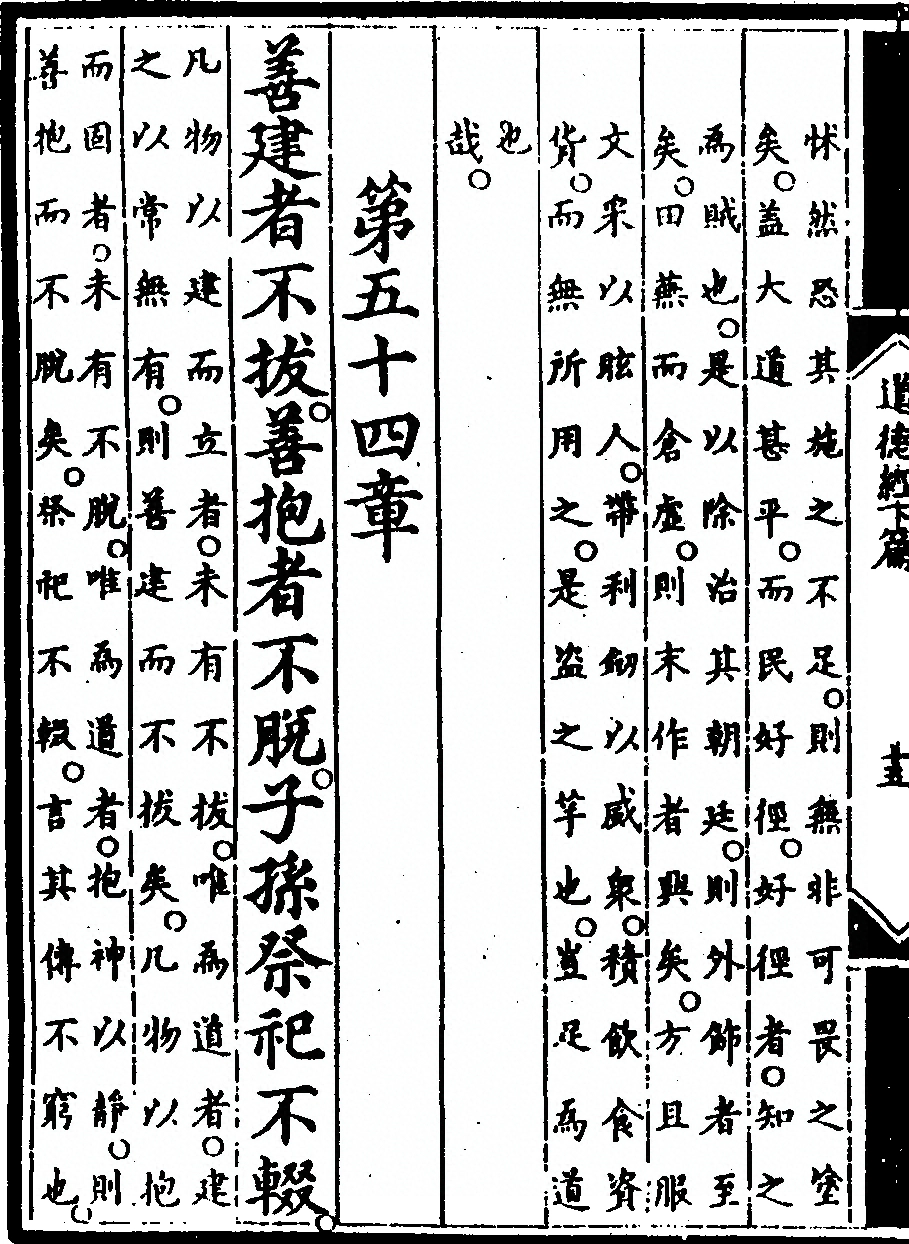 道德經下篇
十五
怵然恐其施之不足。則無非可畏之塗
矣。蓋大道甚平。而民好徑。好徑者。知之
為賊也。是以除治其朝廷。則外飾者至
矣。田蕪而倉虛。則末作者興矣。方且服
文采以眩人。帶利劒以威衆。積飲食資
貨。而無所用之。是盜之竽也。豈足為道
也
哉。
第五十四章
善建者不拔。善抱者不脫。子孫祭祀不輟。
凡物以建而立者。未有不拔。唯為道者。建
之以常無有。則善建而不拔矣。凡物以抱
而固者。未有不脫。唯為道者。抱神以靜。則
善抱而不脫矣。祭祀不輟。言其傳不窮也。